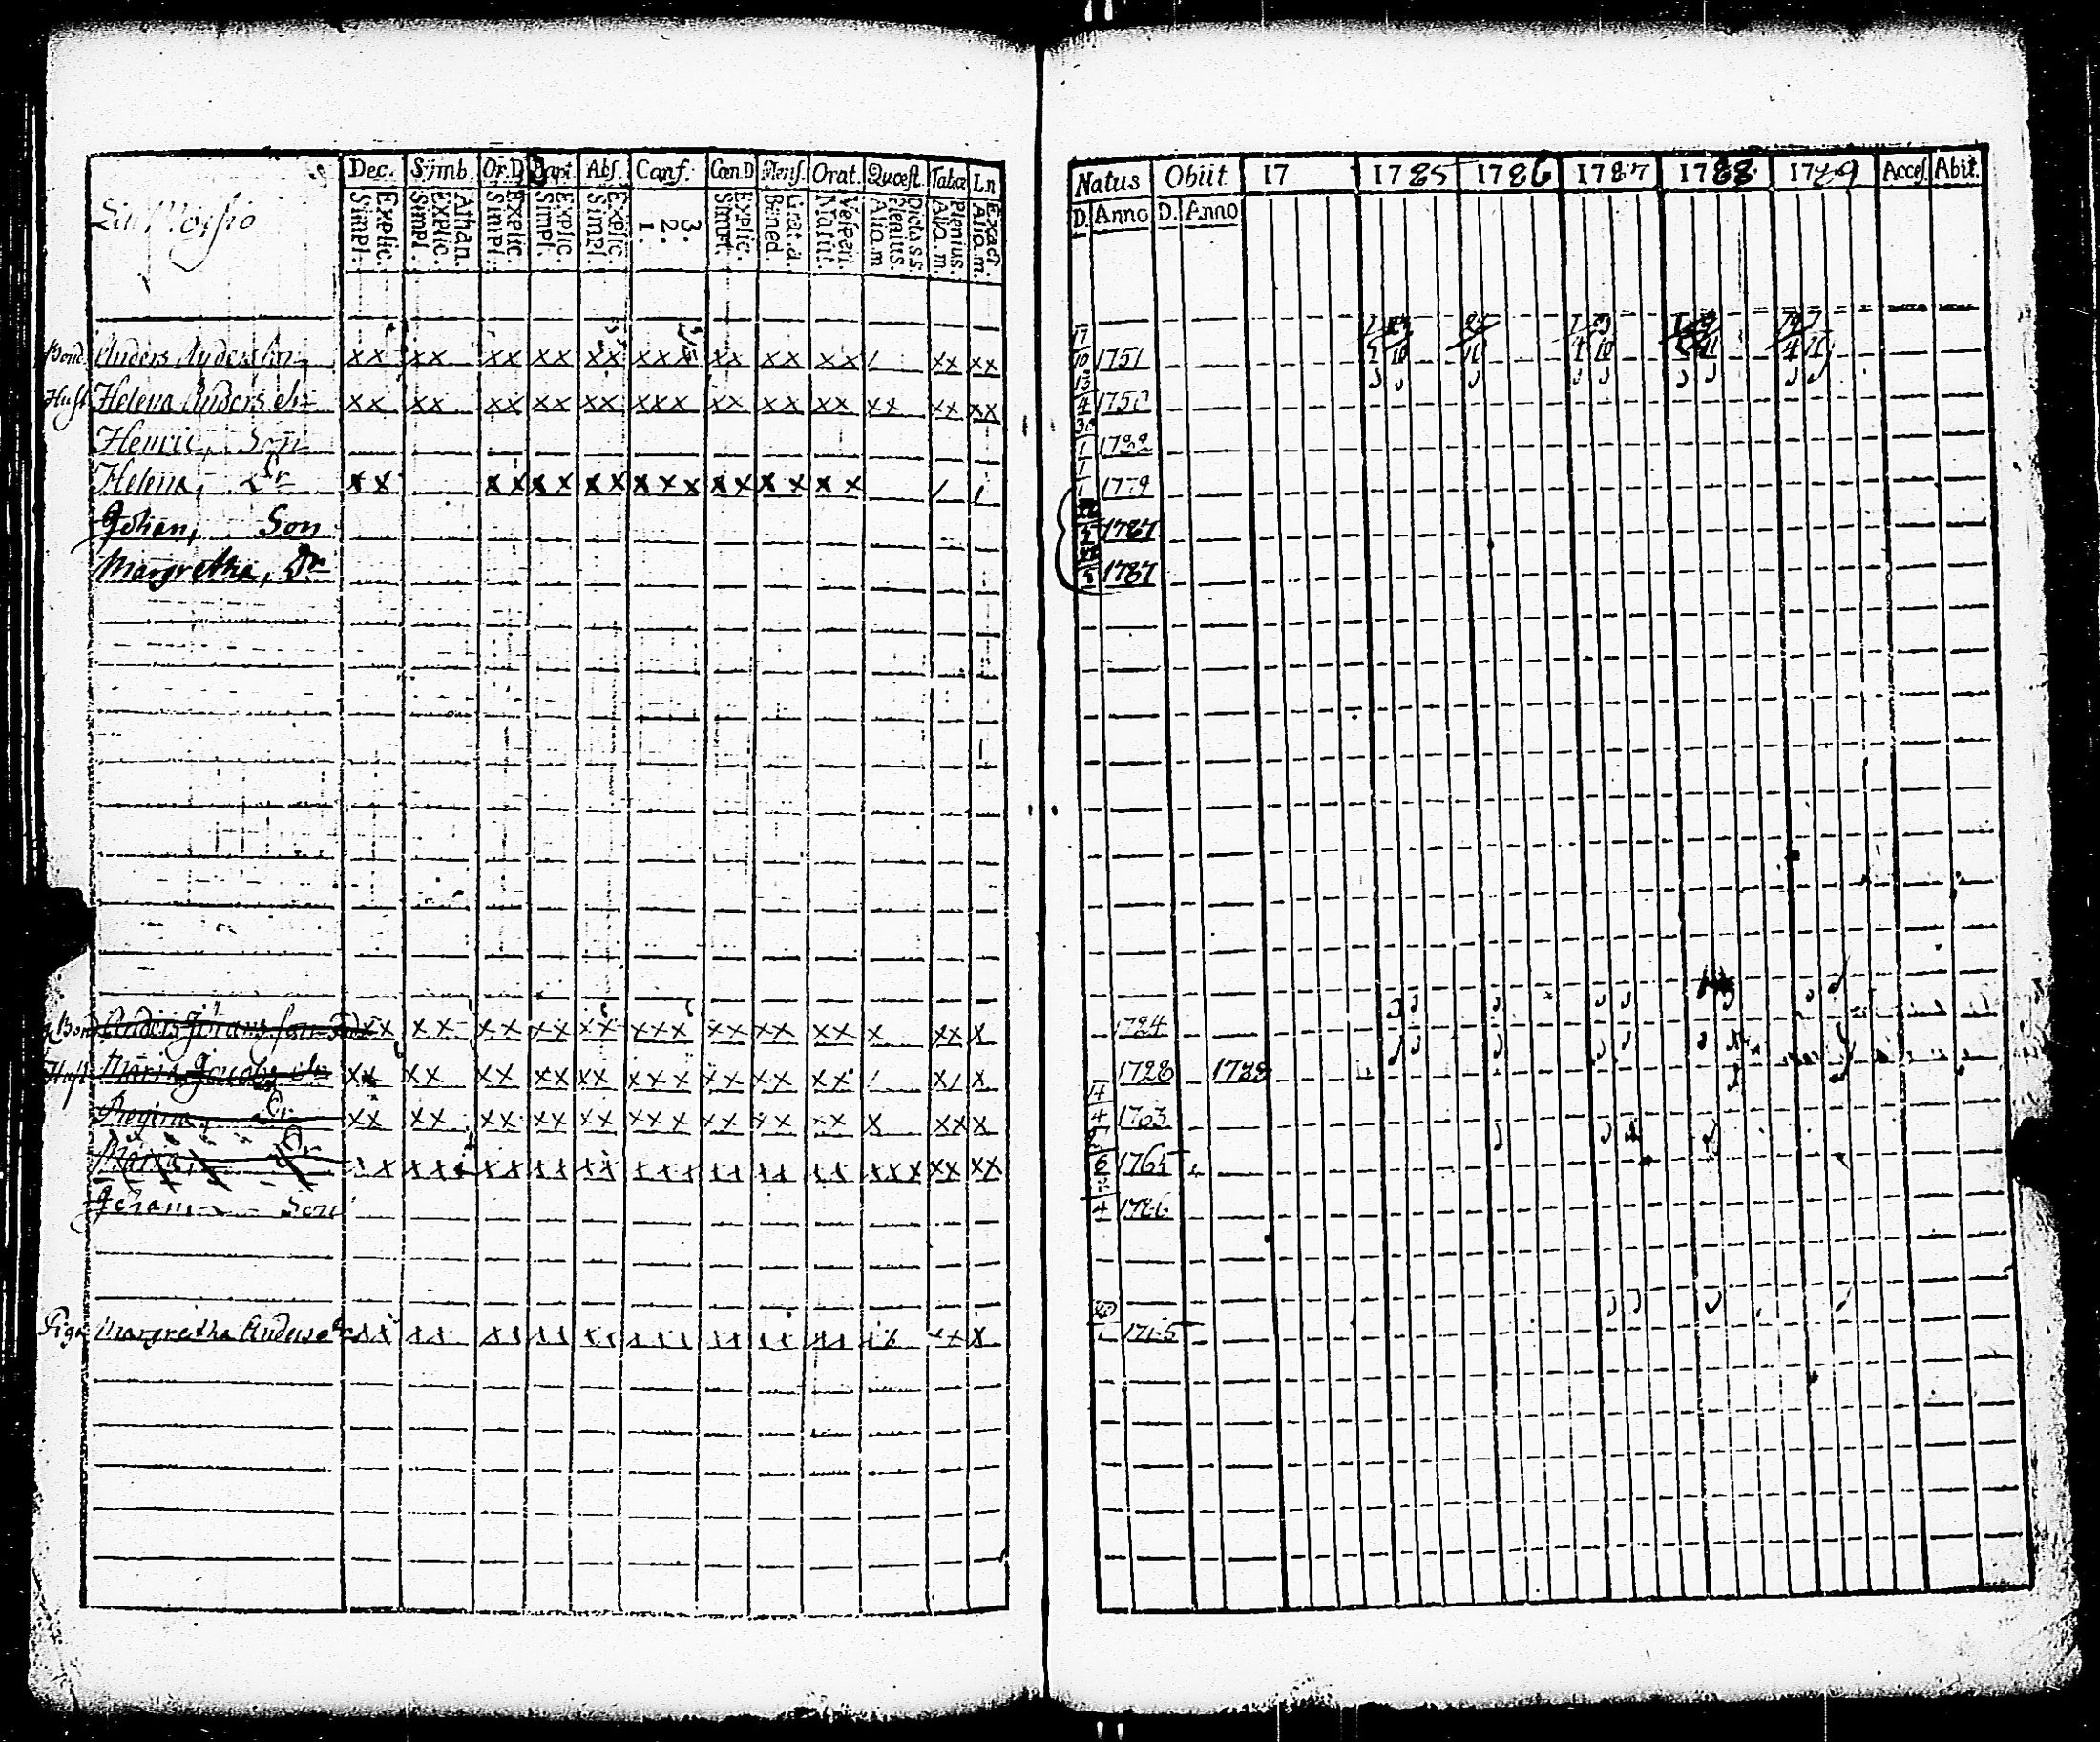 Dec. Sÿmb. Or.D Bapt. Abs. Conf. Cœn.D Mens. Orat. Quæst. Tabœ Ln
Explic. Simpl. Athan. Explic. Simpl. Explic. Simpl. Explic. Simpl. Explic. Simpl. 3. 2. 1. Explic. Simpl. Grat. a. Bened. Vesperi. Matut. Dicta s.s. Plenius. Alio. m Plenius. Alio. m. Exact. Alio. m.
Bond. Anders Andersson xx xx xx xx xx xxx xx xx xx / xx xx
Hust. Helena Anders dr xx xx xx xx xx xxx xx xx xx xx xx xx
Henric, Son
Helena, Dr xx xx xx xx xxx xx xx xx / /
Johan, Son
Margretha, Dr
Bond Anders xx xx xx xx xx xxx xx xx xx x xx x
Hust Maria Jacobs dr xx xx xx xx xx xxx xx xx xx / x/ x
Regina, Dr xx xx xx xx xx xxx xx xx xx x xx x
Maria, Dr xx xxx xx xx xx xxx xx xx xx xxx xx xx
Johan Son
Piga Margretha Anders dr xx xx xx xx xx xxx xx xx xx xx xx x
Natus Obiit 17 1785 1786 1787 1788 1789 Acces. Abit.
D. Anno D. Anno
17/10 1751
13/4 1750
30/1 1782
1/1 1779
1787
1787
1724
1728 1788
14/4 1763
6 1765
4 1786
1765